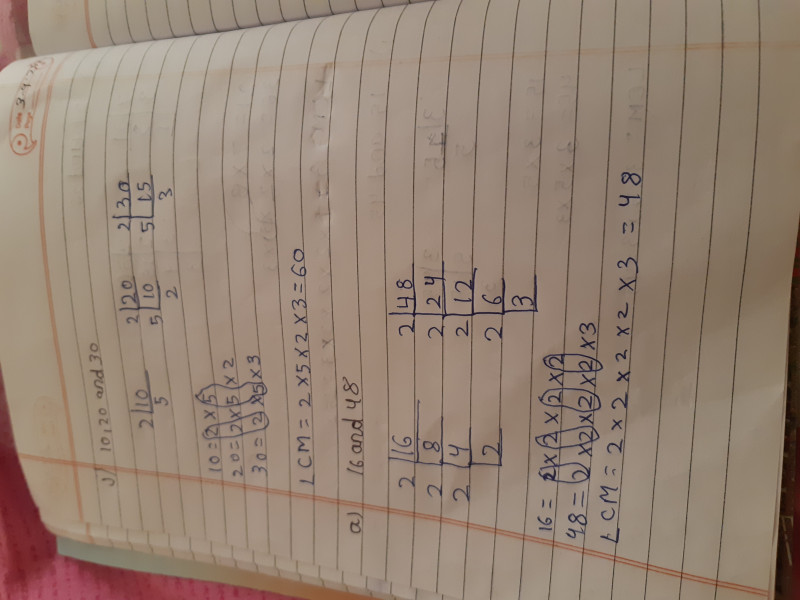 j) 10, 20 and 30
2|10 2|20 2|30
5 5|10 5|15
2 3
10 = 2 × 5
20 = 2 × 5 × 2
30 = 2 × 5 × 3
LCM = 2 × 5 × 2 × 3 = 60
a) 16 and 48
2|16 2|48
2|8 2|24
2|4 2|12
2 2|6
3
16 = 2 × 2 × 2 × 2
48 = 2 × 2 × 2 × 2 × 3
LCM = 2 × 2 × 2 × 2 × 3 = 48